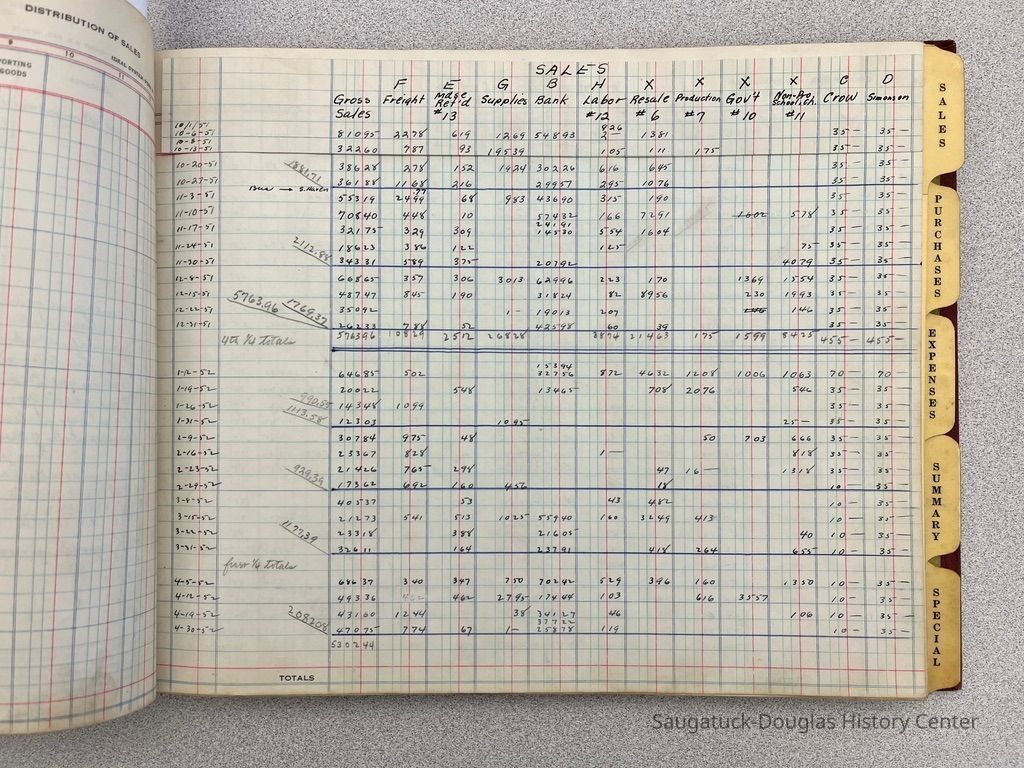 DISTRIBUTION OF SALES
IDEAL SYSTEM
9 10 11
PORTING
GOODS
SALES
F E G B H X X X X C D
Gross Sales Freight Mdse Ret'd #13 Supplies Bank Labor #12 Resale #6 Production #7 Gov't #10 School, Ch. #11 Crow Simonson
10/1/51
10-6-51 81095 2278 619 1269 54893 1381 35- 35-
10-8-51
10-13-51 32260 787 93 19539 105 111 175 35- 35-
10-20-51 38628 278 152 1924 30226 616 645 35- 35-
10-27-51 36188 1168 216 29957 295 1076 35- 35-
11-3-51 55319 2499 68 983 43690 315 190 35- 35-
11-10-51 70840 448 10 57432 166 7291 1602 578 35- 35-
11-17-51 32175 329 309 24191 14530 554 1604 35- 35-
11-24-51 2112.88 18623 386 122 125 75- 35- 35-
11-30-51 34331 589 375 20792 4079 35- 35-
12-8-51 66865 357 306 3013 62996 223 170 1369 1554 35- 35-
12-15-51 48747 845 190 31824 82 8956 230 1993 35- 35-
12-22-51 5763.96 1769.37 35092 1- 19013 207 146 35- 35-
12-31-51 26233 788 52 42598 60 39 35- 35-
4th 1/4 totals 576396 10829 2512 26828 21463 175 1599 8425 455- 455-
1-12-52 64685 502 15394 32756 872 4632 1208 1006 1063 70- 70-
1-19-52 20022 548 13465 708 2076 546 35- 35-
1-26-52 14348 1099 35- 35-
1-31-52 1113.58 12303 1095 25- 35- 35-
2-9-52 30784 975 48 50 703 666 35- 35-
2-16-52 23367 828 1- 818 35- 35-
2-23-52 21426 765 298 47 16- 1318 35- 35-
2-29-52 929.39 17362 692 160 456 18 10- 35-
3-8-52 40537 53 43 482 10- 35-
3-15-52 21273 541 513 1025 55940 160 3249 413 10- 35-
3-22-52 23318 388 21605 40 10- 35-
3-31-52 1177.39 32611 164 23791 418 264 655 10- 35-
first 1/4 totals
4-5-52 68637 340 347 750 70242 529 396 160 1350 10- 35-
4-12-52 49336 462 2795 17444 103 616 3557 10- 35-
4-19-52 43160 1244 38 34127 46 106 10- 35-
4-30-52 2082.08 47075 774 67 1- 37722 25878 119 10- 35-
530244
TOTALS
SALES
PURCHASES
EXPENSES
SUMMARY
SPECIAL
Saugatuck-Douglas History Center